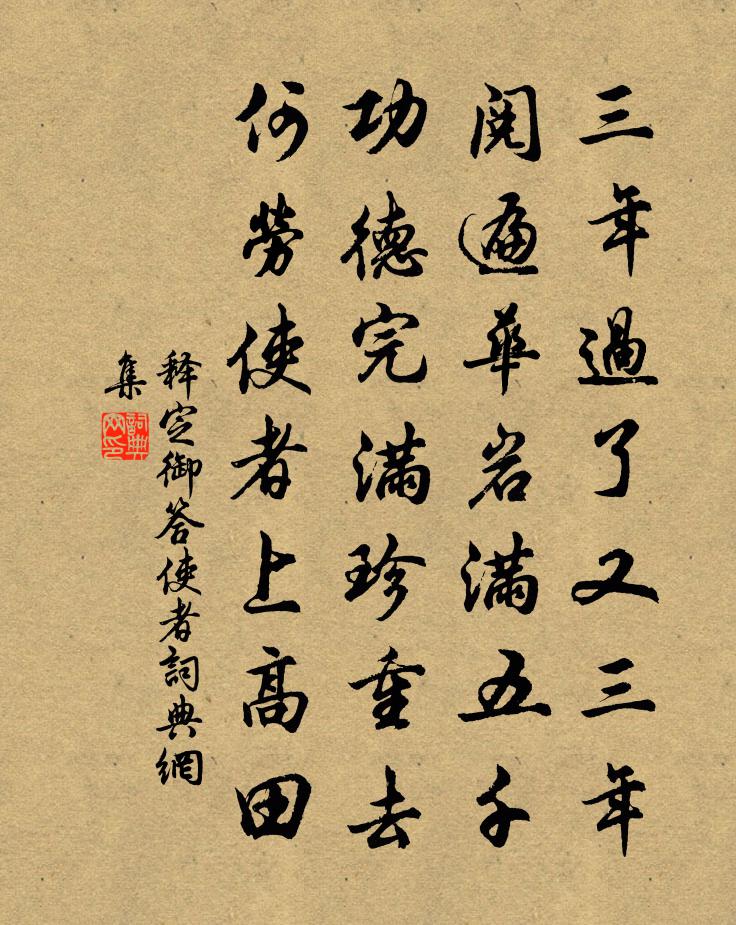 三年過了又三年
閱遍華岩滿五千
功德完滿珍重去
何勞使者上高田
释定御答使者詞典網
集
詞典
網印